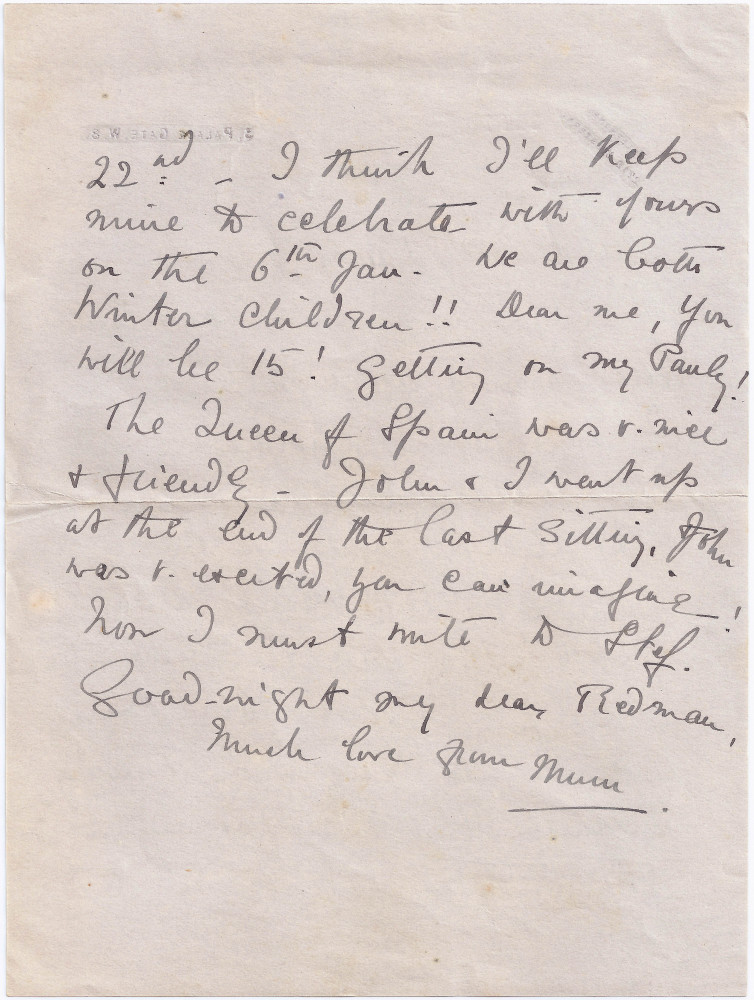 3, PALACE GATE, W. 8.
22nd – I think I'll keep
mine to celebrate with yours
on the 6th Jan. We are both
Winter children!! Dear me, you
will be 15! Getting on my Pauly!
The Queen of Spain was v. nice
& friendly – John & I went up
at the end of the last Sitting, John
was v. excited, you can imagine!
Now I must write to Stef.
Good-night my dear Redman,
Much love from Mum.